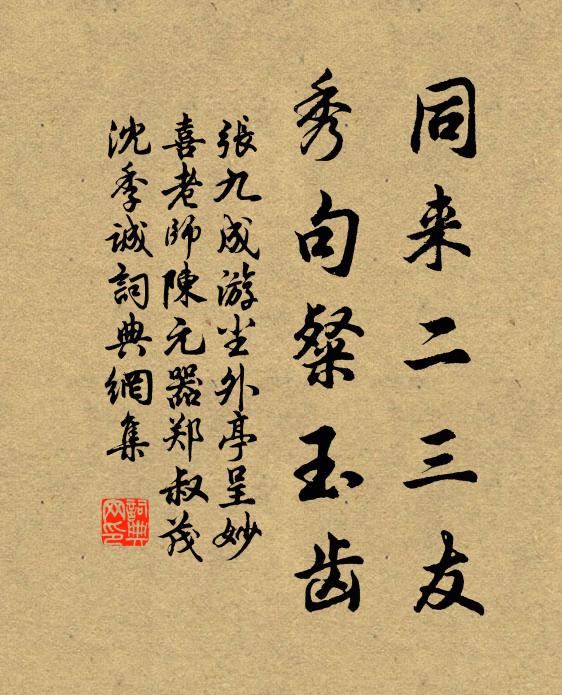 同来二三友
秀句粲玉齿
張九成游尘外亭呈妙
喜老师陳元器郑叔茂
沈季诚詞典網集
詞典
网印